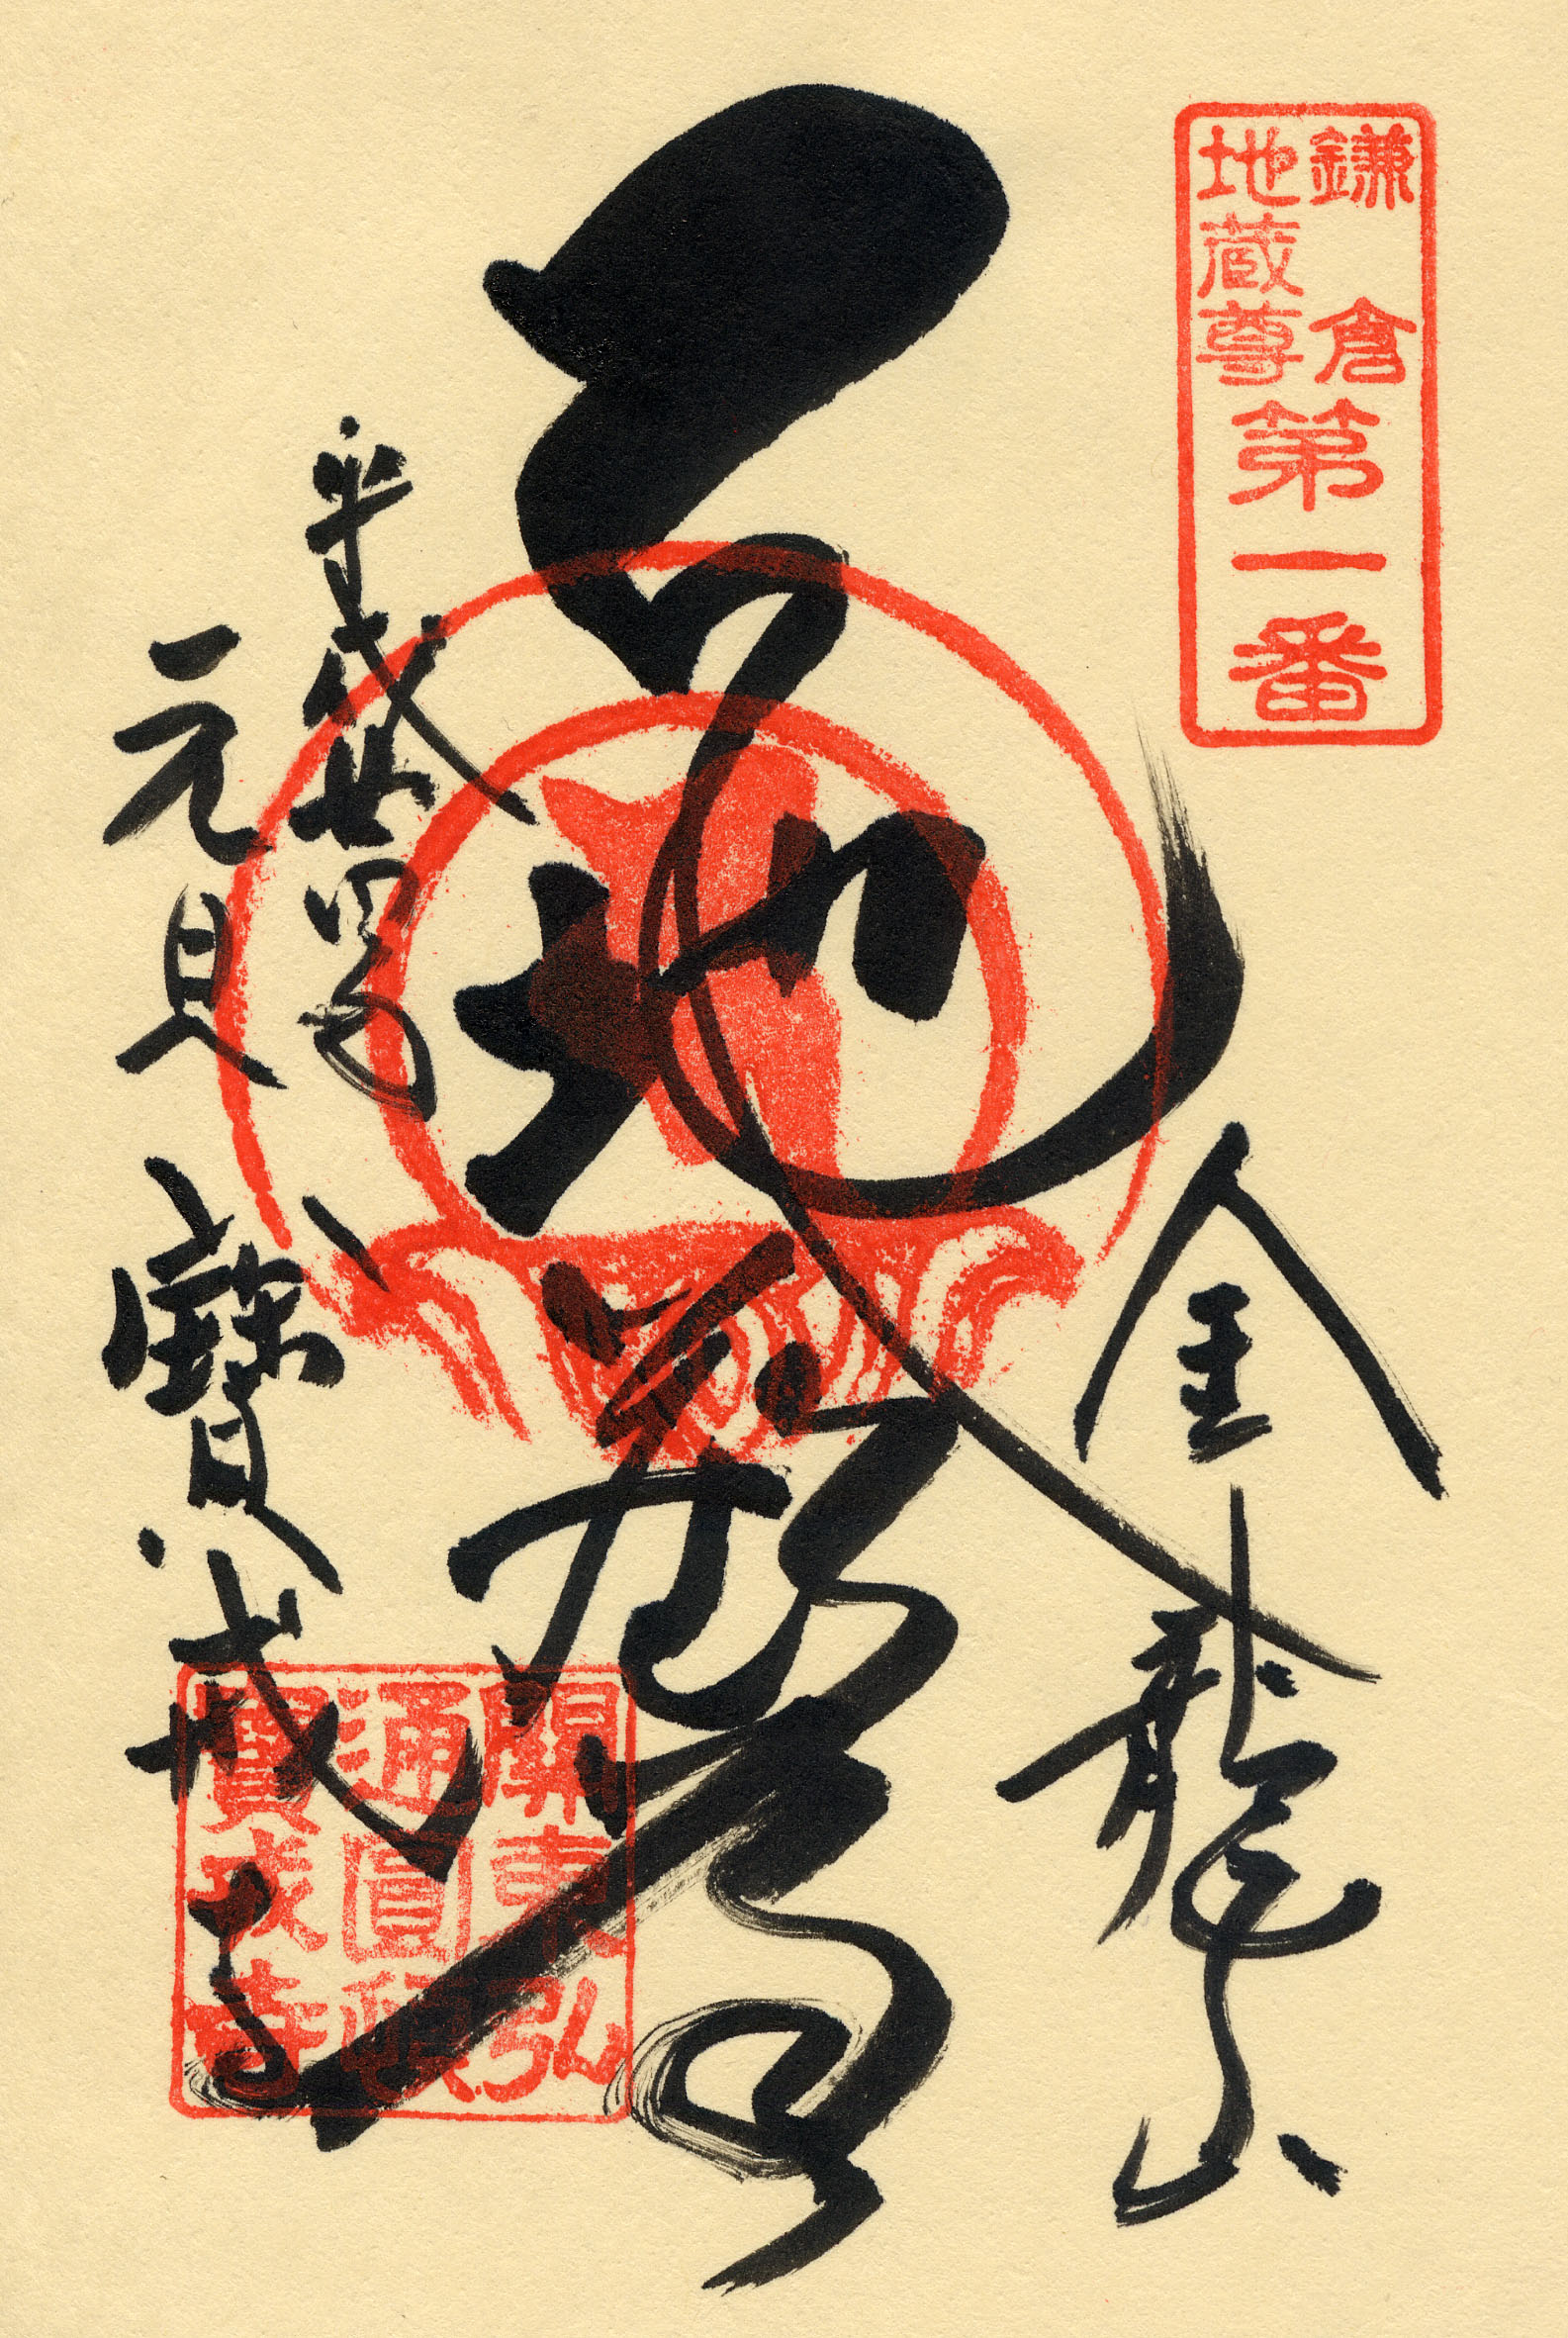 鎌倉
地蔵尊
第一番
金龍山
地蔵尊
平成廿四年
元旦 寶戒寺
關東弘
通圓頓
寶戒寺